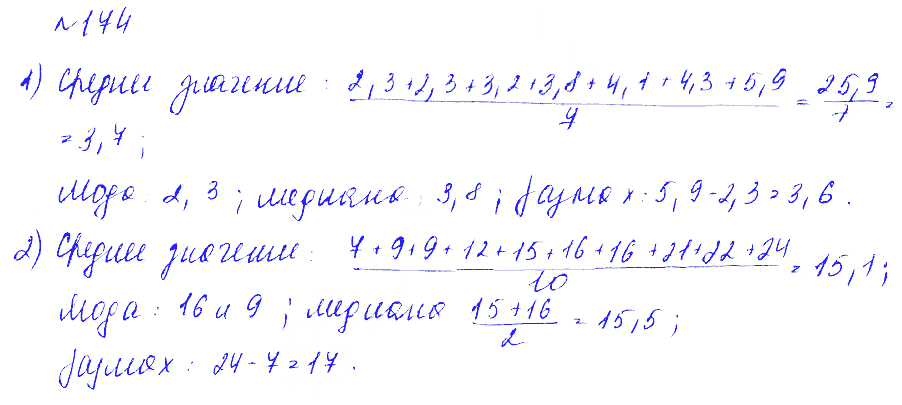 №174
1) Среднее значение: (2,3+2,3+3,2+3,8+4,1+4,3+5,9)/7 = 25,9/7 =
= 3,7;
Мода: 2,3; медиана: 3,8; размах: 5,9-2,3=3,6.
2) Среднее значение: (7+9+9+12+15+16+16+21+22+24)/10 = 15,1;
Мода: 16 и 9; медиана (15+16)/2 = 15,5;
размах: 24-7=17.